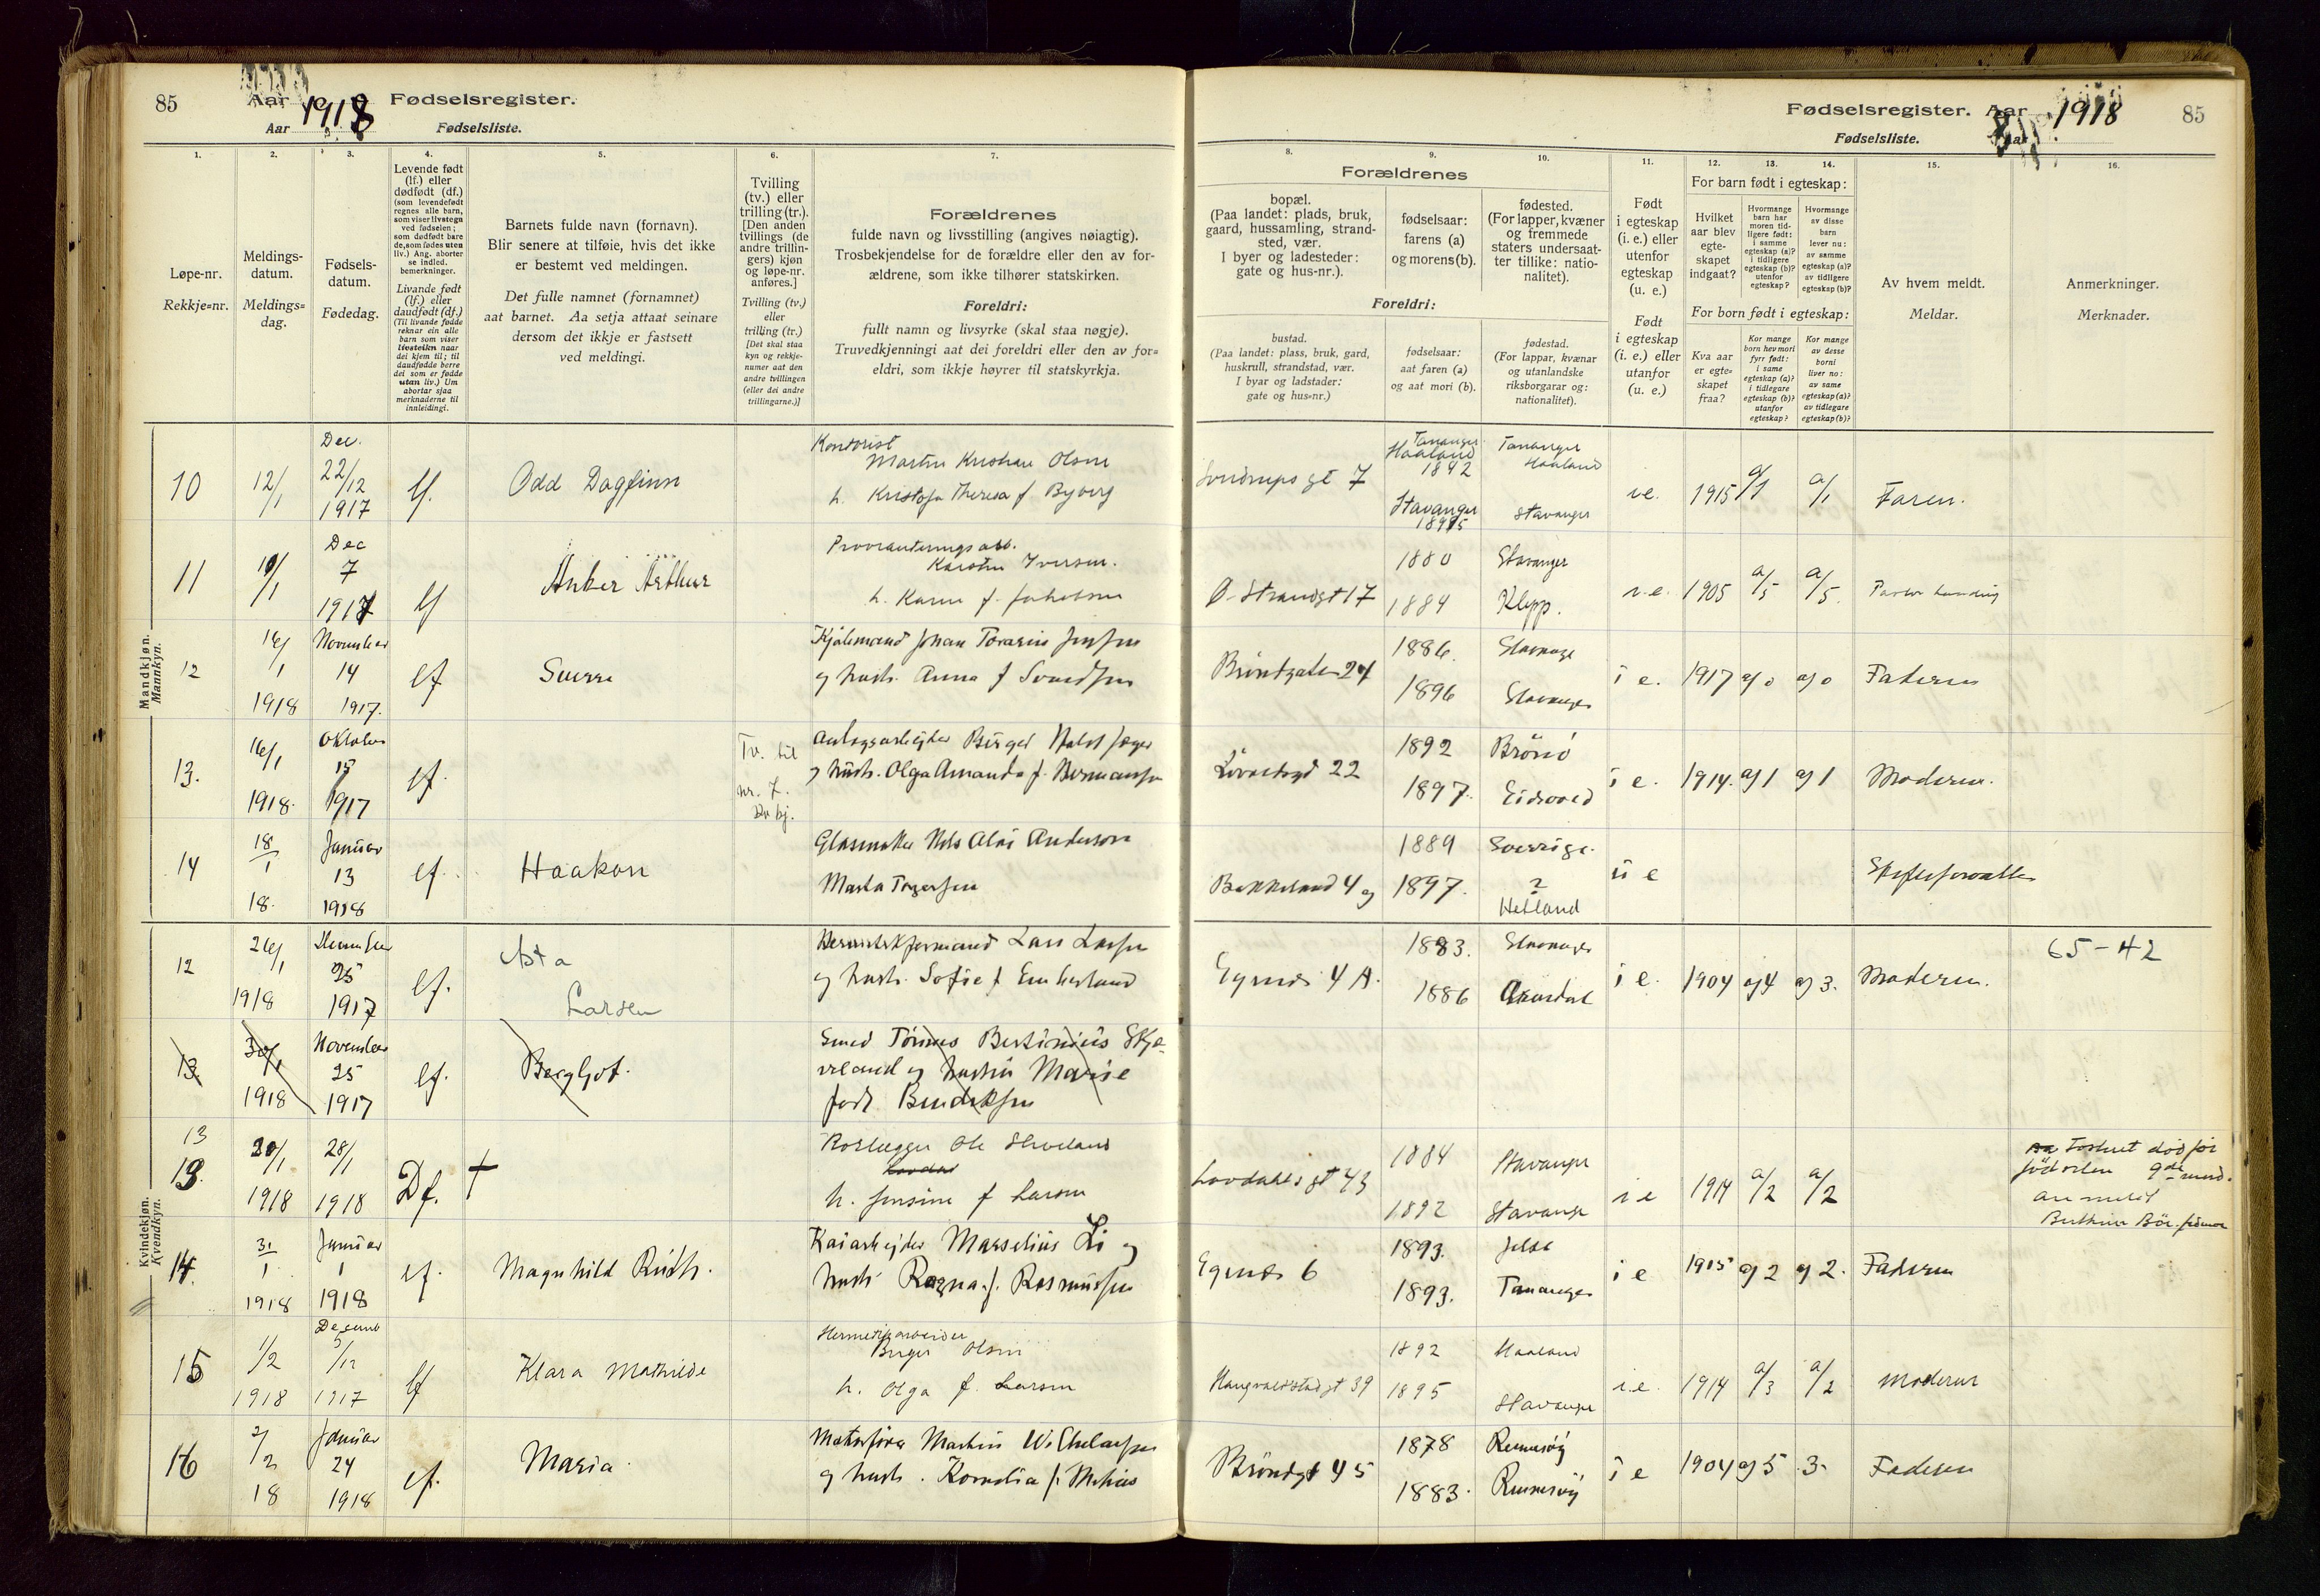 85 Aar 1918 Fødselsregister.
Aar Fødselsliste.
1. 2. 3. 4. 5. 6. 7.
Løpe-nr.
Rekkje=nr.
Meldings-
datum.
Meldings=
dag.
Fødsels-
datum.
Fødedag.
Levende født
(lf.) eller
dødfødt (df.)
(som levendefødt
regnes alle barn,
som viser livstegn
ved fødselen;
som dødfødt bare
de, som fødes uten
liv.) Ang. aborter
se indled.
bemerkninger.
Livande født
(lf.) eller
daudfødt (df.)
(Til livande fødde
reknar ein alle
barn som viser
livsteikn naar
dei kjem til; til
daudfødde berre
dei som er fødde
utan liv.) Um
abortar sjaa
merknaderne til
innleidingi.
Barnets fulde navn (fornavn).
Blir senere at tilføie, hvis det ikke
er bestemt ved meldingen.
Det fulle namnet (fornamnet)
aat barnet. Aa setja attaat seinare
dersom det ikkje er fastsett
ved meldingi.
Tvilling
(tv.) eller
trilling (tr.).
[Den anden
tvillings (de
andre trillin-
gers) kjøn
og løpe-nr.
anføres.]
Tvilling (tv.)
eller
trilling (tr.)
[Det skal staa
kyn og rekkje-
numer aat den
andre tvillingen
(eller dei andre
trillingarne.)]
Forældrenes
fulde navn og livsstilling (angives nøiagtig).
Trosbekjendelse for de forældre eller den av for-
ældrene, som ikke tilhører statskirken.
Foreldri:
fullt namn og livsyrke (skal staa nøgje).
Truvedkjenningi aat dei foreldri eller den av for=
eldri, som ikkje høyrer til statskyrkja.
Mandkjøn.
Mannkyn.
10
12/1
Dec.
22/12
1917
lf.
Odd Dagfinn
Kontorist
Martin Kristian Olsen
h. Theresa f
11
10/1
Dec
7
1917
lf
Anker Arthur
Karsten Iversen.
h. Karen f. Jakobsen
12
16/1
1918
November
14
1917.
lf
Sverre
Johan
og hustr. Anna f Svendsen
13.
16/1
1918.
Oktober
15
1917
lf.
Tv. til
nr. 7.
Kv kj.
Birger
og hustr. Olga Amanda f. Hermansen
14
18/1
18.
Januar
13
1918
lf.
Haakon
Nils Andersson
Marta Torgersen
Kvindekjøn.
Kvendkyn.
12
26/1
1918
25
1917
lf.
Asta
Larsen
Lars Larsen
og hustr. Sofie f
13
30/1
1918
November
25
1917
lf.
Bergljot.
Smed Tønnes Bertinius Skjæ-
veland og hustru Marie
født Bendiksen
13
13.
1918
28/1
1918
Df.
†
Ole
h. Jensine f Larsen
14.
31/1
1918
Januar
1
1918
lf.
Magnhild Ruth.
Kaiarbejder Marselius Li og
hustr Ragna f. Rasmussen
15
1/2
1918
Decemb
5/12
1917
lf
Klara Mathilde
Hermetikarbeider
Birger Olsen
h. Olga f. Larsen
16
2/2
18
Januar
24
1918
lf.
Maria
Martin
og hustr. Kornelia f.
Fødselsregister. Aar 1918 85
Fødselsliste. Aar
8. 9. 10. 11. 12. 13. 14. 15. 16.
Forældrenes
bopæl.
(Paa landet: plads, bruk,
gaard, hussamling, strand-
sted, vær.
I byer og ladesteder:
gate og hus-nr.).
Foreldri:
bustad.
(Paa landet: plass, bruk, gard,
huskrull, strandstad, vær.
I byar og ladstader:
gate og hus=nr.)
fødselsaar:
farens (a)
og morens (b).
fødselsaar:
aat faren (a)
og aat mori (b).
fødested.
(For lapper, kvæner
og fremmede
staters undersaat-
ter tillike: natio-
nalitet).
fødestad.
(For lappar, kvænar
og utanlandske
riksborgarar og:
nationalitet).
Født
i egteskap
(i. e.) eller
utenfor
egteskap
(u. e.)
Født
i egteskap
(i. e.) eller
utanfor
(u. e.)
For barn født i egteskap:
Hvilket
aar blev
egte-
skapet
indgaat?
Hvormange
barn har
moren tid-
ligere født:
i samme
egteskap (a)?
i tidligere
egteskap (b)?
utenfor
egteskap?
Hvormange
av disse
barn
lever nu:
av samme
egteskap (a)?
av tidligere
egteskap (b)?
For born født i egteskap:
Kva aar
er egte=
skapet
fraa?
Kor mange
born hev mori
fyrr født:
i same
egteskap (a)?
i tidlegare
egteskap (b)?
utanfor
egteskap?
Kor mange
av desse
borni
liver no:
av same
egteskap (a)?
av tidlegare
egteskap (b)?
Av hvem meldt.
Meldar.
Anmerkninger.
Merknader.
7
Tananger
Haaland
1892
Stavanger
1895
Tananger
Haaland
Stavanger
i.e.
1915 a/1 a/1
Faren.
Ø. Strandgt 17
1880
1884
Stavanger
Klepp.
i.e.
1905 a/5 a/5.
24
1886.
1896
Stavanger
Stavanger
i e.
1917 a) 0 a) 0
Faderen
22
1892
1897.
Brönö
Eidsvold
i e.
1914. a) 1 a) 1
Moderen.
1889
1897.
Sverrige.
?
Hetland
u e
Egenes 4 A.
1883.
1886
Stavanger
i e.
1904 a) 4 a) 3.
Moderen.
65-42
Lovdahlsgt 43
1884
1892
Stavanger
Stavanger
i e
1914 a/2 a/2
Fostret død før
fødselen 9de mnd.
anmeldt
Egenes 6
1893.
1893.
Tananger
i e
1915 a) 2 a) 2.
Faderen
39
1892
1895
Haaland
Stavanger
i.e.
1914 a/3 a/2
Moderen
Bröndgt 45
1878
1883.
Rennesöy
Rennesöy
i e
1904 a) 5 3.
Faderen